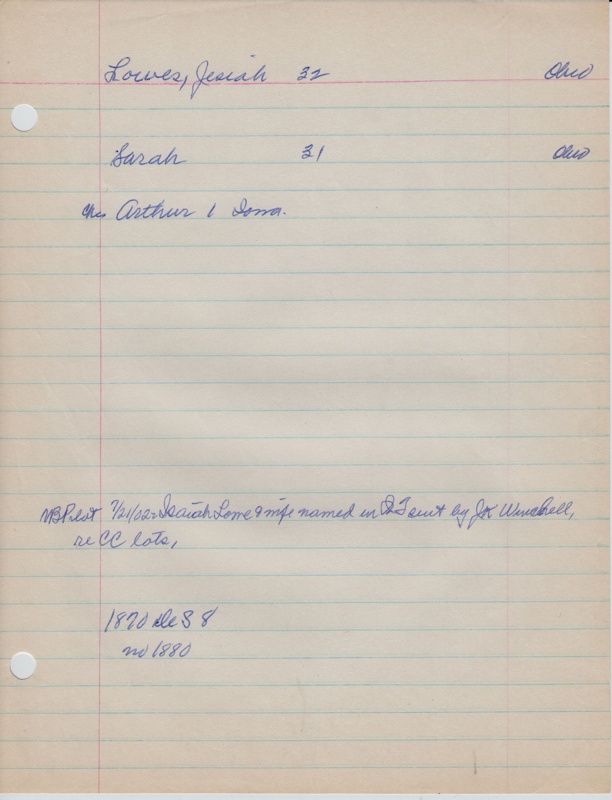 Lowes, Jesiah 32 Ohio
Sarah 31 Ohio
Arthur 1 Iowa.
7/21/02 - Isaiah Lowe & wife named in suit by J K Winchell,
re CC lots,
1870 De S 8
no 1880